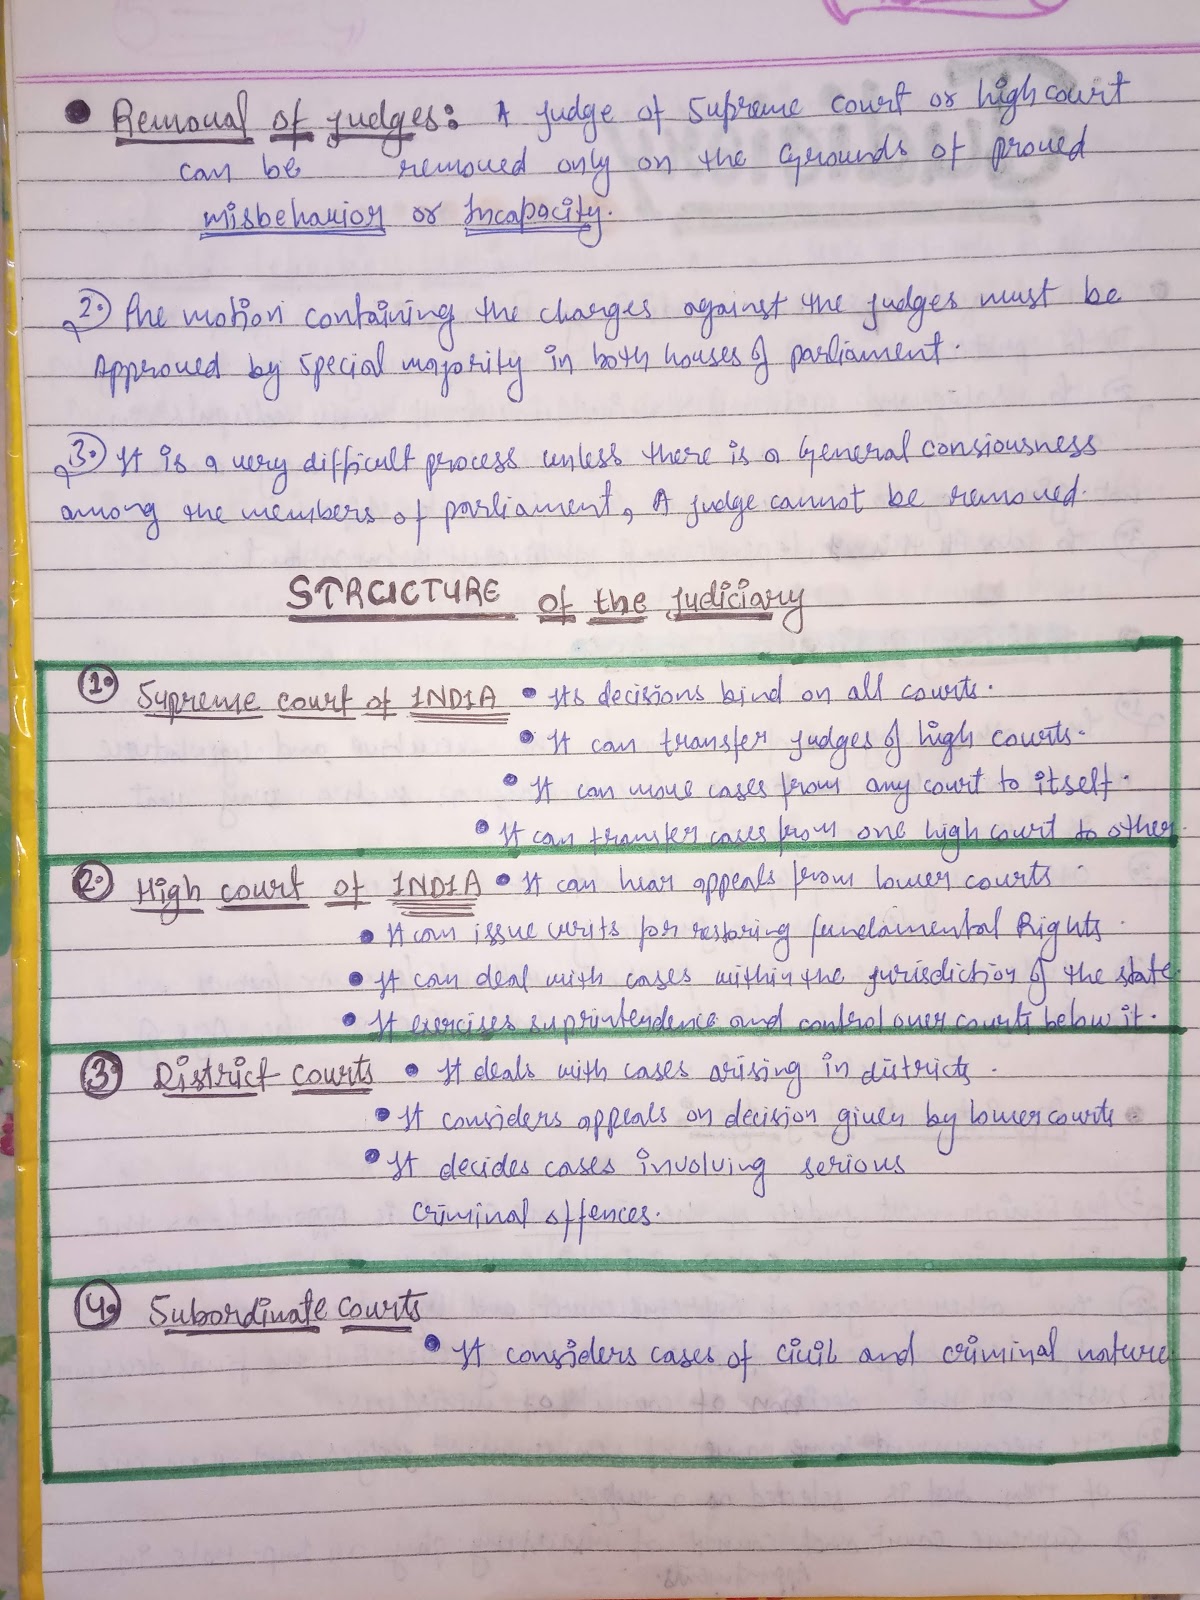 Removal of judges: A judge of Supreme court or high court
can be removed only on the Grounds of proved
misbehavior or Incapacity.
2. The motion containing the charges against the judges must be
Approved by Special majority in both houses of parliament.
3. It is a very difficult process unless there is a General consiousness
among the members of parliament, A judge cannot be removed.
STRUCTURE of the Judiciary
1. Supreme court of INDIA • Its decisions bind on all courts.
• It can transfer judges of high courts.
• It can move cases from any court to itself.
• It can transfer cases from one high court to other.
2. High court of INDIA • It can hear appeals from lower courts
• It can issue writs for restoring fundamental Rights.
• It can deal with cases within the jurisdiction of the state
• It exercises suprintendence and control over courts below it.
3. District courts • It deals with cases arising in districts.
• It considers appeals on decision given by lower courts
• It decides cases involving serious
criminal offences.
4. Subordinate courts
• It considers cases of civil and criminal nature